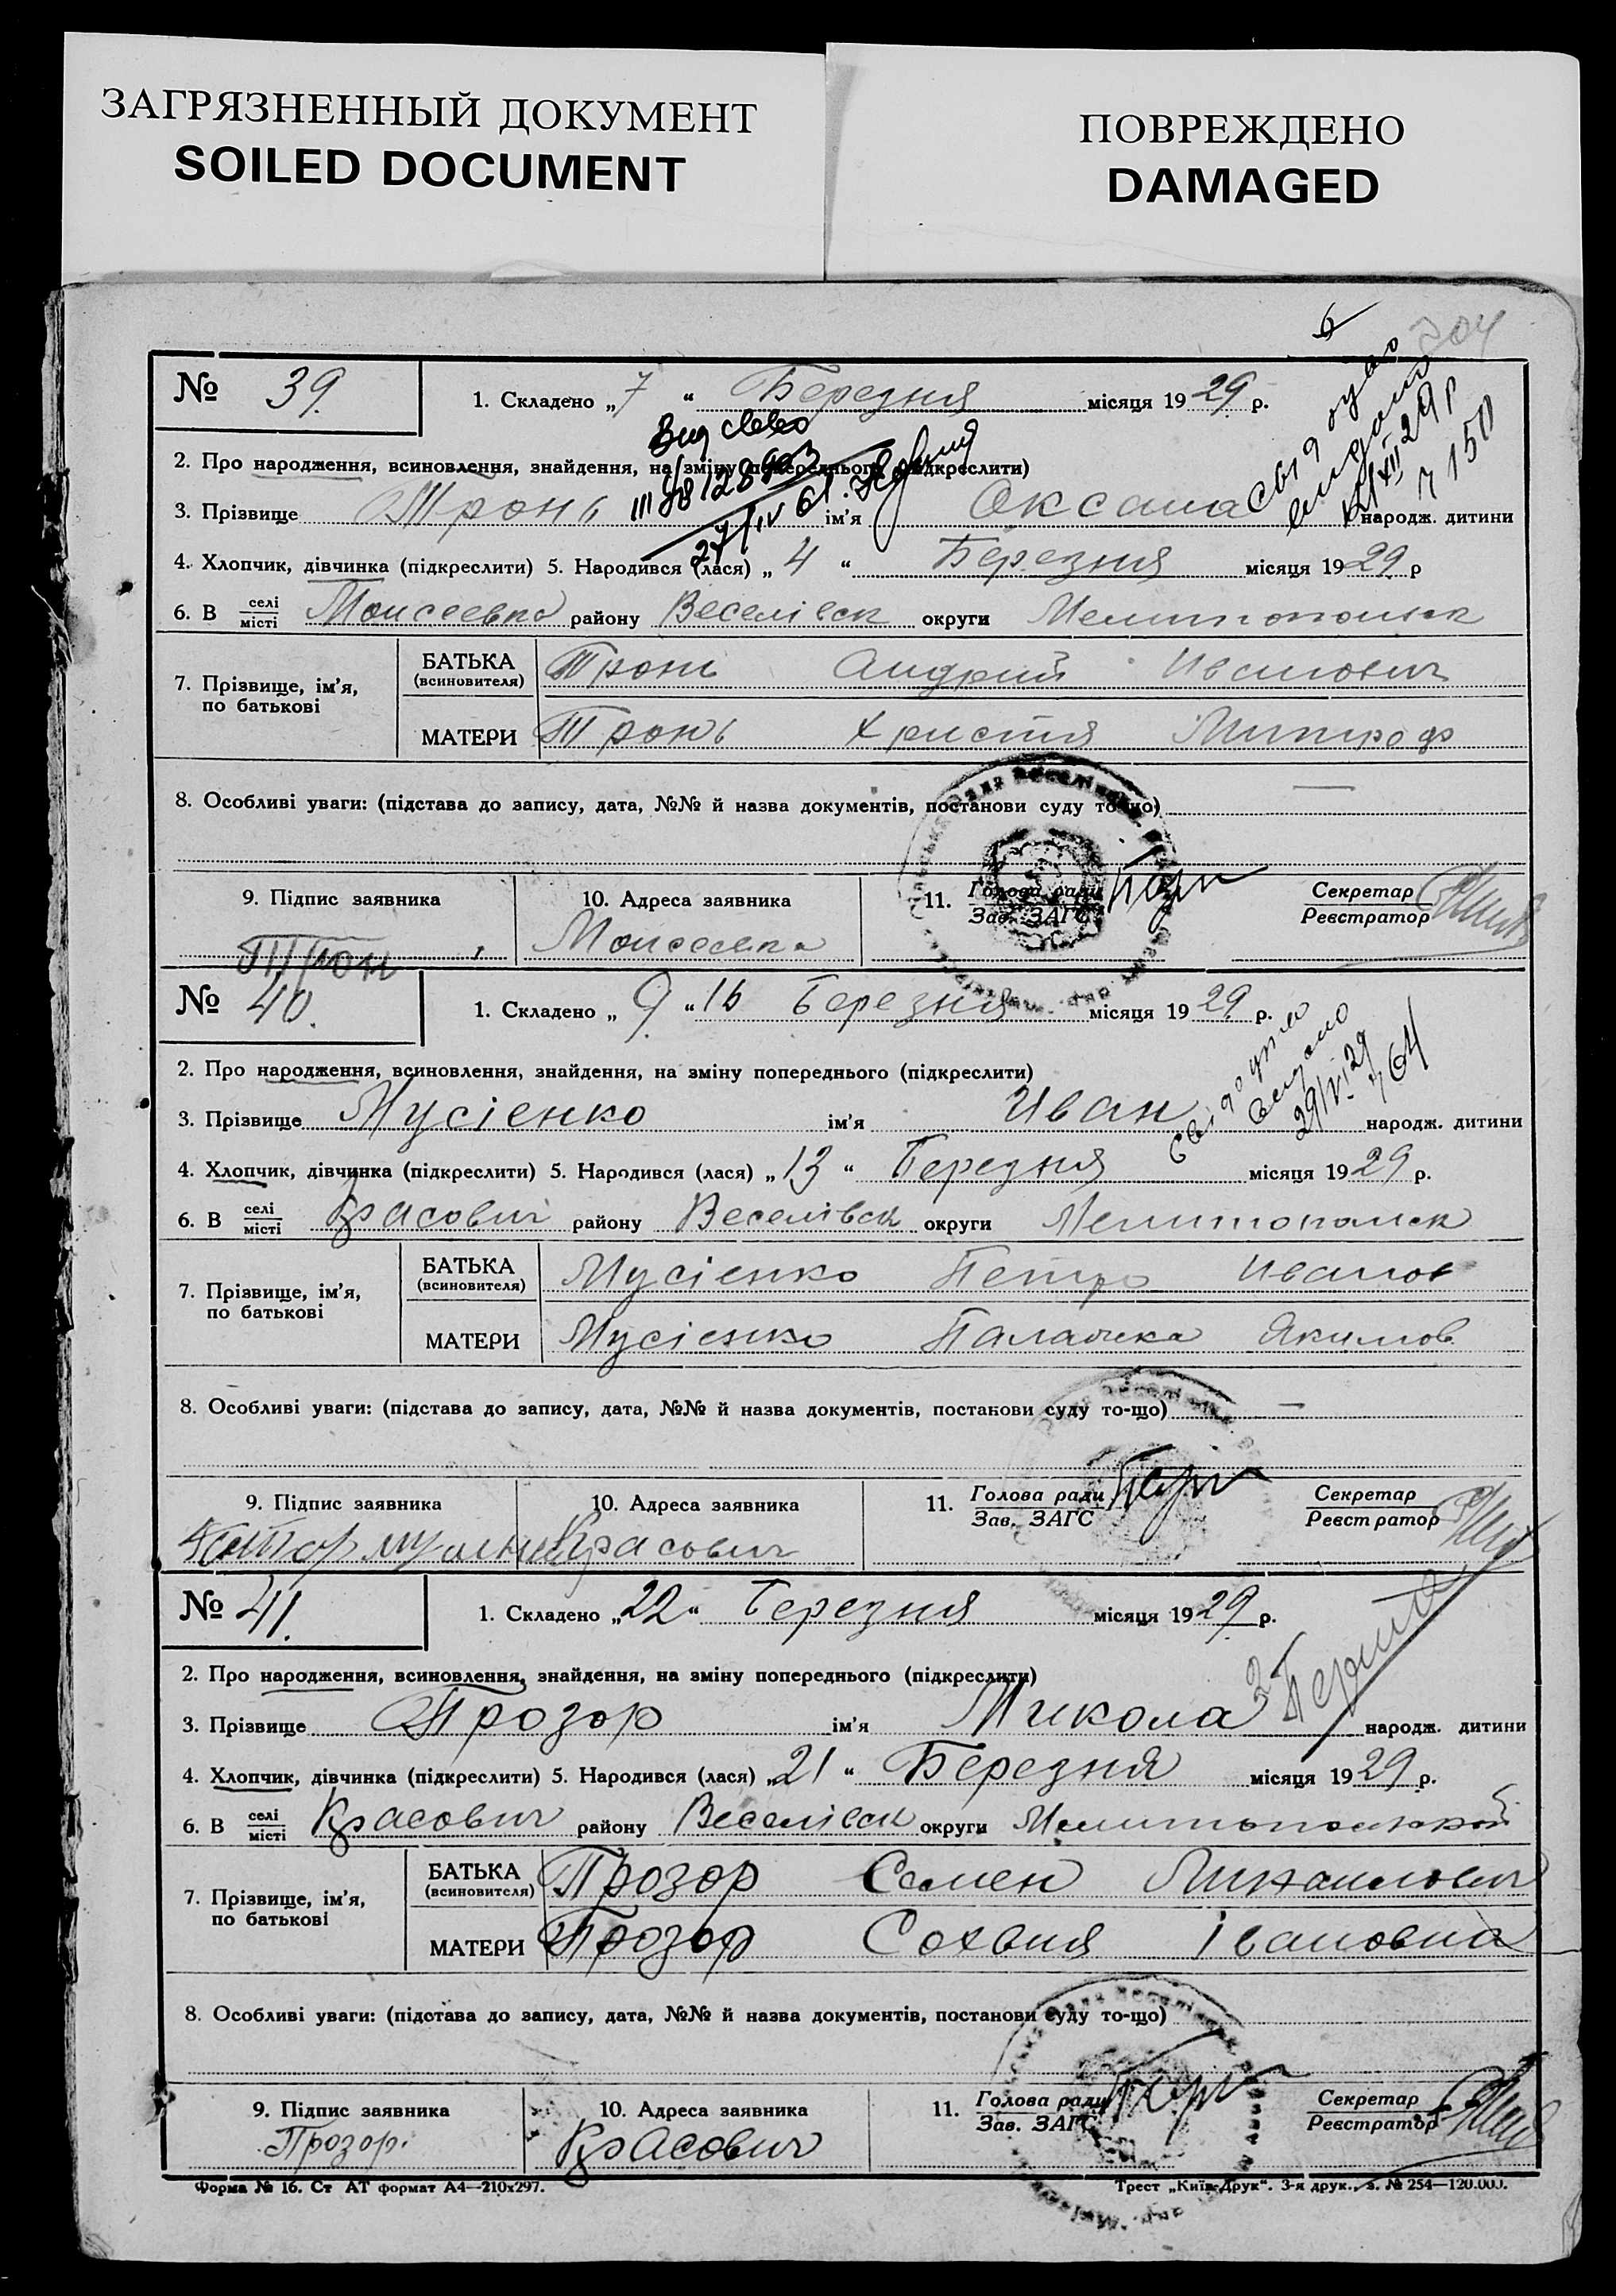 ЗАГРЯЗНЕННЫЙ ДОКУМЕНТ
SOILED DOCUMENT
ПОВРЕЖДЕНО
DAMAGED
№ 39. 1. Складено „7“ Березня місяця 1929 р.
2. Про народження, всиновлення, знайдення, на зміну попереднього (підкреслити)
3. Прізвище Тронь ім'я Оксана народж. дитини
4. Хлопчик, дівчинка (підкреслити) 5. Народився (лася) „4“ Березня місяця 1929 р
6. В селі місті Моисеевка району Веселівск округи Мелитопольск
7. Прізвище, ім'я, по батькові
БАТЬКА (всиновителя) Тронь Андрий Иванович
МАТЕРИ Тронь Христя Митроф
8. Особливі уваги: (підстава до запису, дата, №№ й назва документів, постанови суду то-що) —
9. Підпис заявника 10. Адреса заявника 11. Голова ради Зав. ЗАГС Секретар Реєстратор
Трон Моисеевка
№ 40. 1. Складено „9“ 16 Березня місяця 1929 р.
2. Про народження, всиновлення, знайдення, на зміну попереднього (підкреслити)
3. Прізвище Мусіенко ім'я Иван народж. дитини
Свідоцтво видано 29/VI 29 764
4. Хлопчик, дівчинка (підкреслити) 5. Народився (лася) „13“ Березня місяця 1929 р.
6. В селі місті Красович району Веселівск округи Мелитопольск
7. Прізвище, ім'я, по батькові
БАТЬКА (всиновителя) Мусіенко Петро Иванов
МАТЕРИ Мусіенко Палажка Якимов
8. Особливі уваги: (підстава до запису, дата, №№ й назва документів, постанови суду то-що) —
9. Підпис заявника 10. Адреса заявника 11. Голова ради Зав. ЗАГС Секретар Реєстратор
Красович
№ 41. 1. Складено „22“ Березня місяця 1929 р.
2. Про народження, всиновлення, знайдення, на зміну попереднього (підкреслити)
3. Прізвище Прозор ім'я Микола народж. дитини
4. Хлопчик, дівчинка (підкреслити) 5. Народився (лася) „21“ Березня місяця 1929 р.
6. В селі місті Красович району Веселівск округи Мелитопольской
7. Прізвище, ім'я, по батькові
БАТЬКА (всиновителя) Прозор Семен Михаилович
МАТЕРИ Прозор Сохвия Івановна
8. Особливі уваги: (підстава до запису, дата, №№ й назва документів, постанови суду то-що)
9. Підпис заявника 10. Адреса заявника 11. Голова ради Зав. ЗАГС Секретар Реєстратор
Прозор. Красович
Форма № 16. Ст АТ формат А4—210х297. Трест „Київ-Друк“. 3-я друк., з. № 254—120.000.